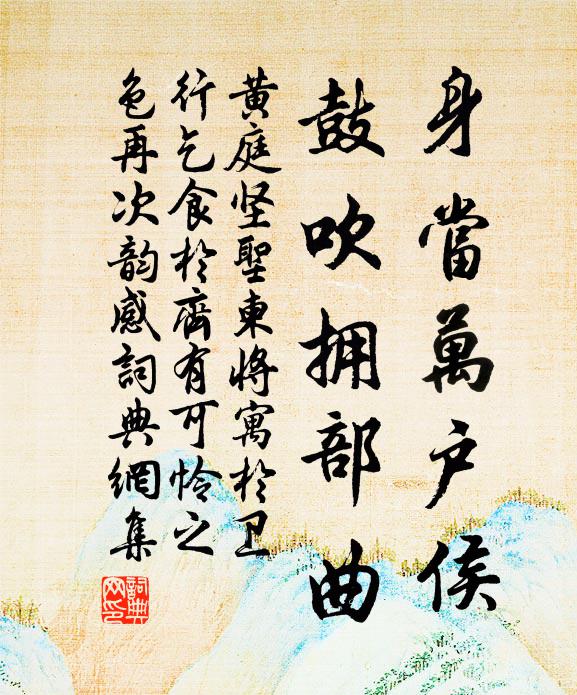 身當萬户侯
鼓吹拥部曲
黄庭坚聖東將寓於卫
行乞食於齊有可怜之
色再次韵感詞典網集
詞典網印